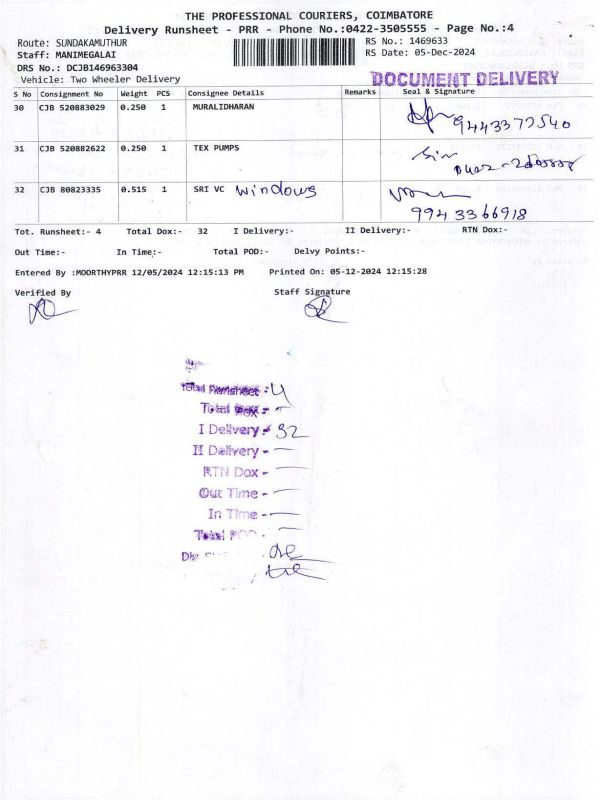 THE PROFESSIONAL COURIERS, COIMBATORE
Delivery Runsheet - PRR - Phone No.:0422-3505555 - Page No.:4
Route: SUNDAKAMUTHUR RS No.: 1469633
Staff: MANIMEGALAI RS Date: 05-Dec-2024
DRS No.: DCJB146963304
Vehicle: Two Wheeler Delivery DOCUMENT DELIVERY
S No Consignment No Weight PCS Consignee Details Remarks Seal & Signature
30 CJB 520883029 0.250 1 MURALIDHARAN
9443377540
31 CJB 520882622 0.250 1 TEX PUMPS
32 CJB 80823335 0.515 1 SRI VC Windows
9943366918
Tot. Runsheet:- 4 Total Dox:- 32 I Delivery:- II Delivery:- RTN Dox:-
Out Time:- In Time:- Total POD:- Delvy Points:-
Entered By :MOORTHYPRR 12/05/2024 12:15:13 PM Printed On: 05-12-2024 12:15:28
Verified By Staff Signature
Total Runsheet :- 4
Total Dox -
I Delivery - 32
II Delivery -
RTN Dox -
Out Time -
In Time -
Total POD -